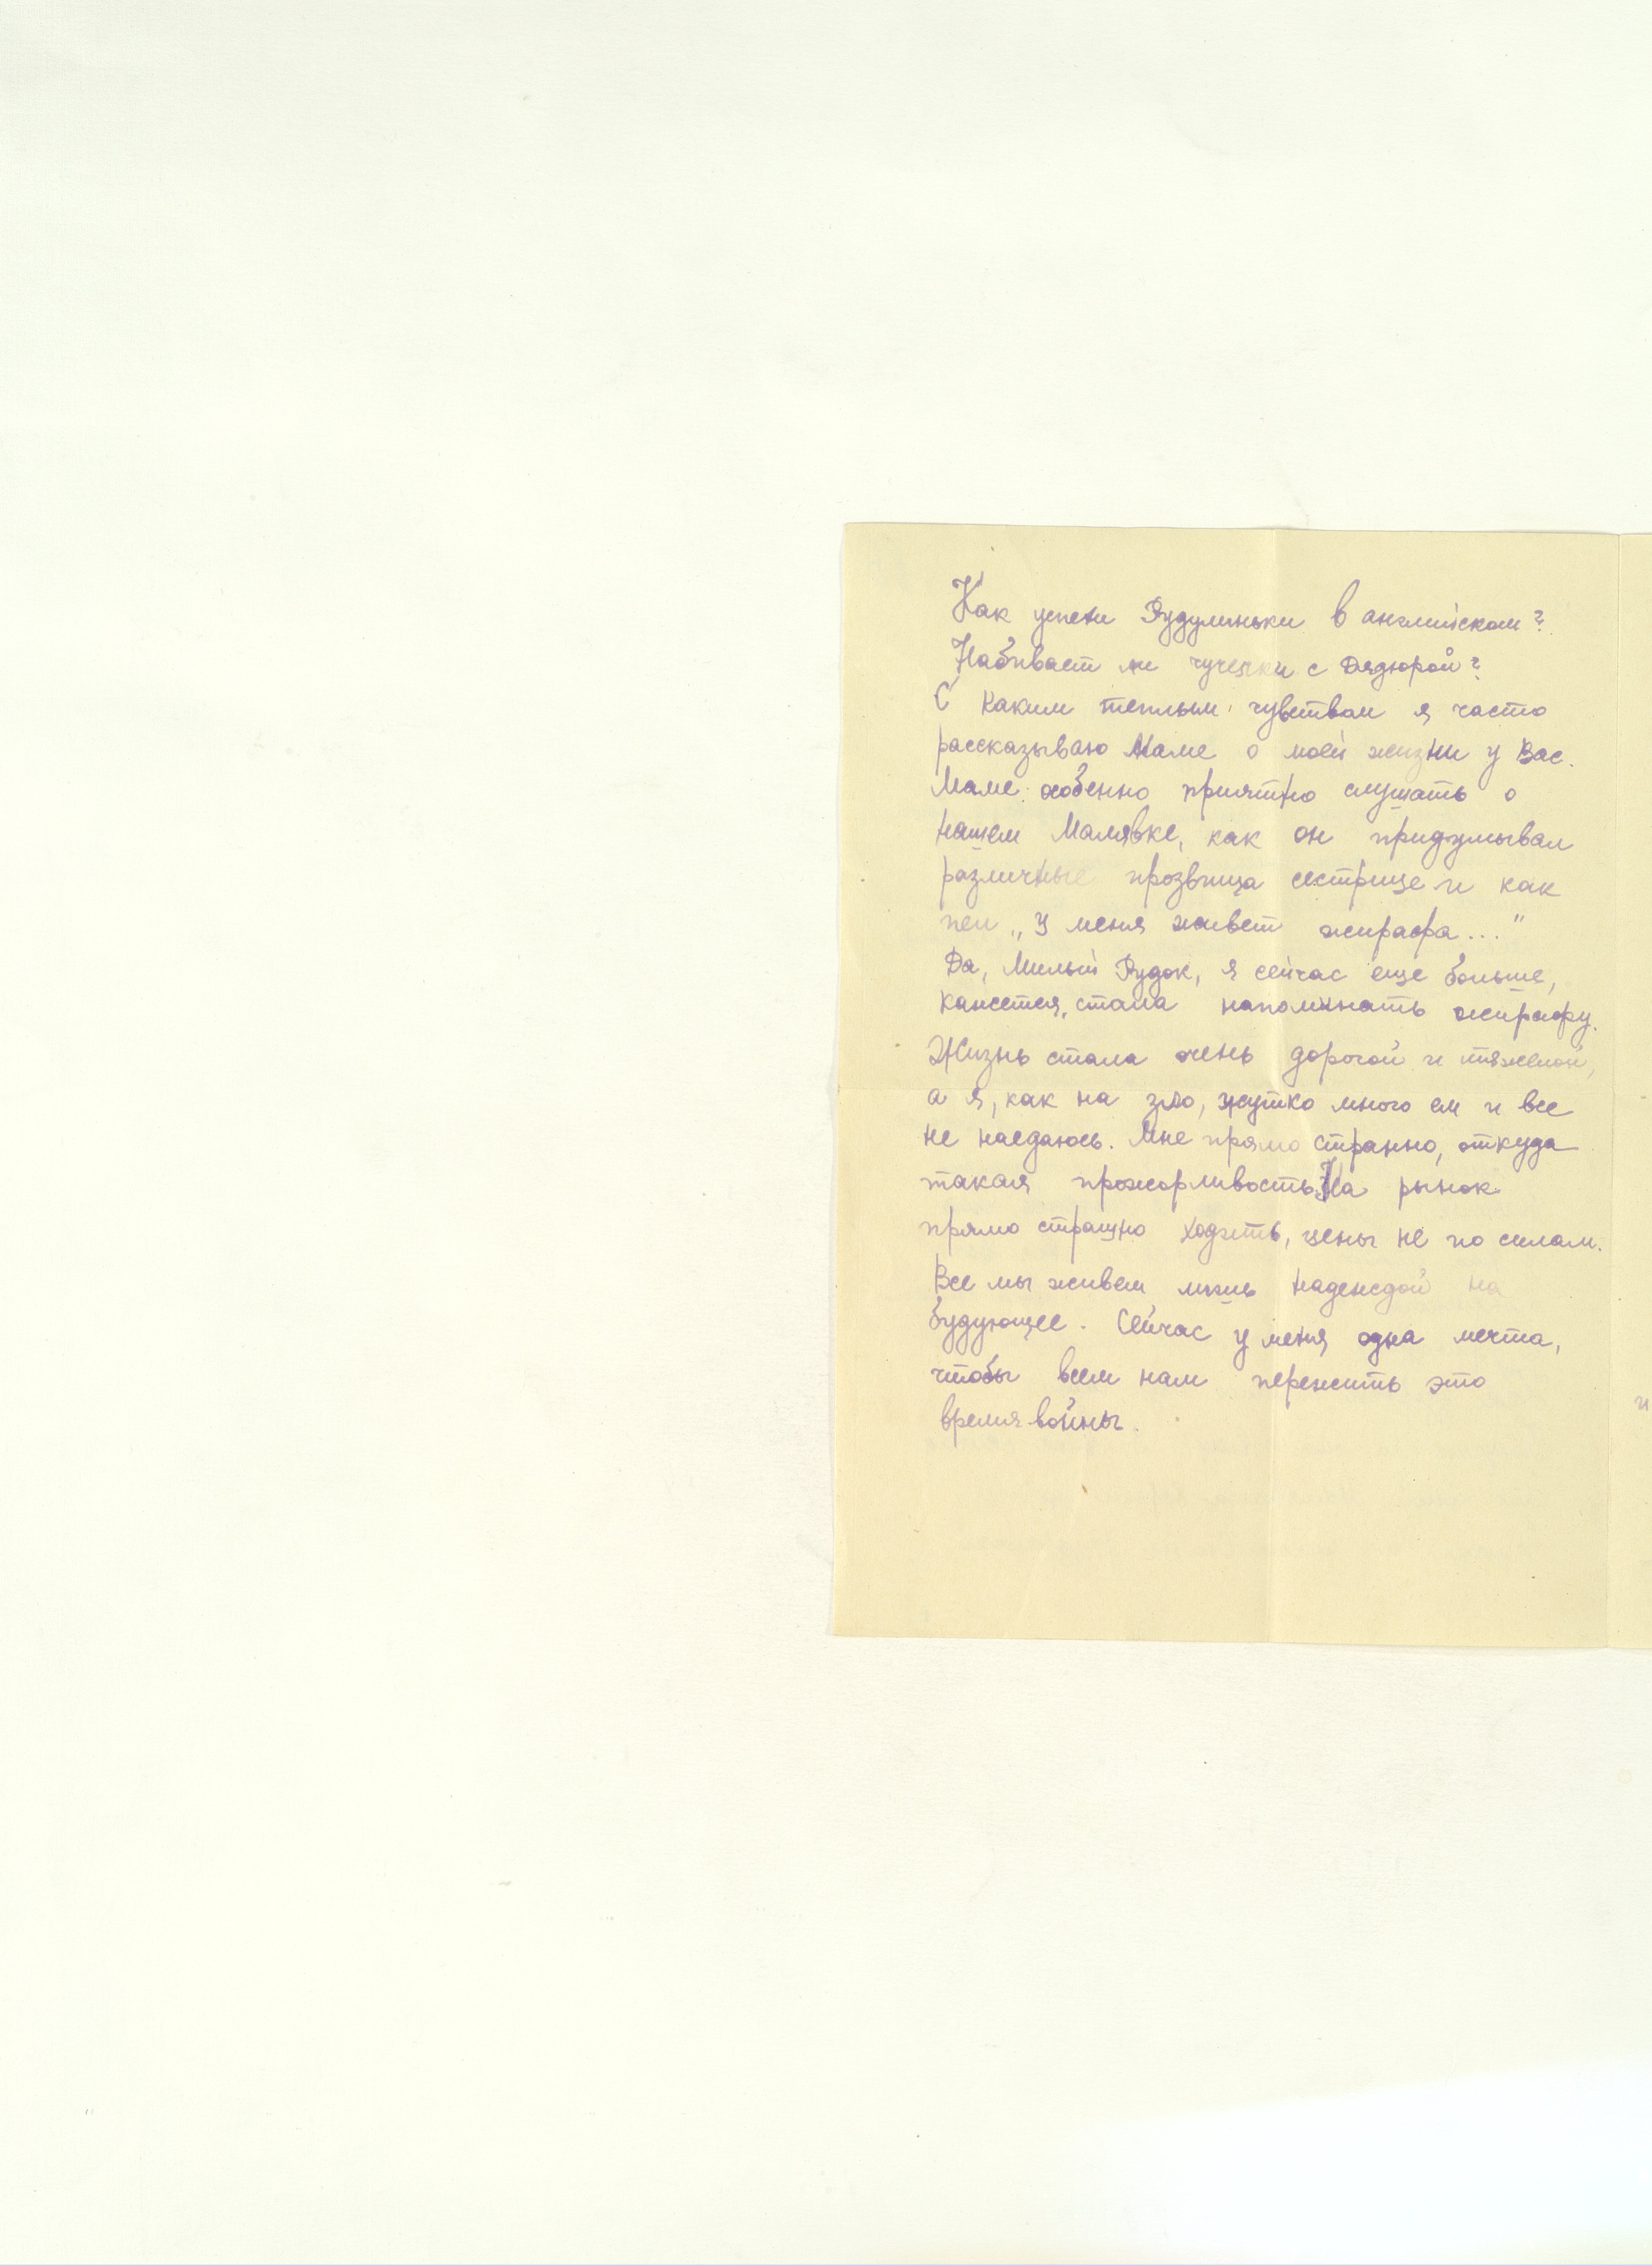 Как успехи Рудулиньки в английском?
Набивает ли чучелки с Дядюрой?
С каким теплым чувством я часто
рассказываю Маме о моей жизни у Вас.
Маме особенно приятно слушать о
нашем Малявке, как он придумывал
различные прозвища сестрице и как
пел „У меня живет жирафа..."
Да, Милый Рудок, я сейчас еще больше,
кажется, стала напоминать жирафу.
Жизнь стала очень дорогой и тяжелой,
а я, как на зло, жутко много ем и все
не наедаюсь. Мне прямо странно, откуда
такая прожорливость. На рынок
прямо страшно ходить, цены не по силам.
Все мы живем лишь надеждой на
будующее. Сейчас у меня одна мечта,
чтобы всем нам пережить это
время войны.
и